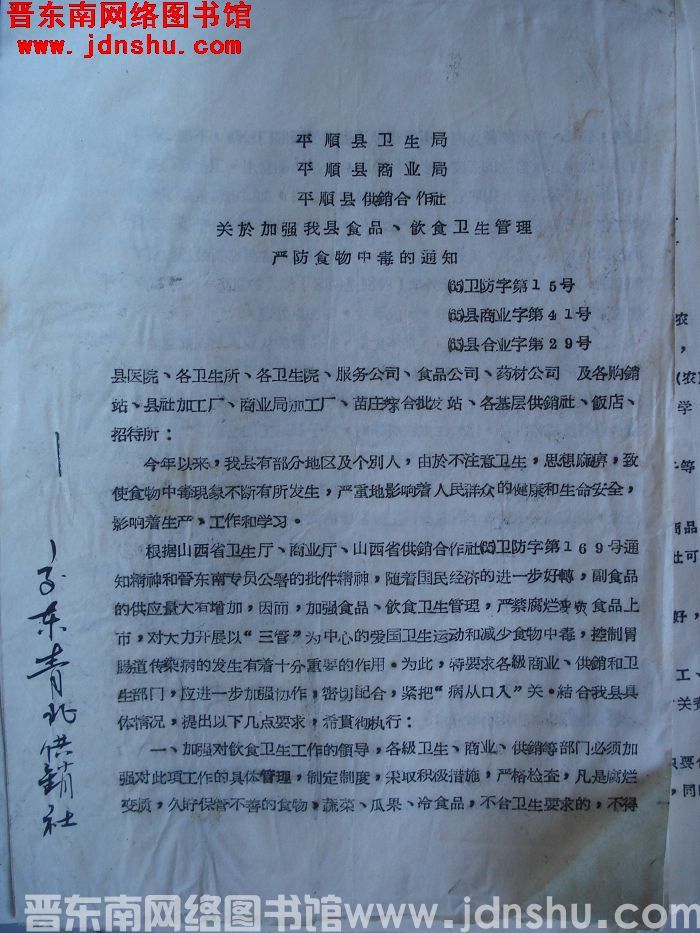 晋东南网络图书馆
www.jdnshu.com
平順县卫生局
平順县商业局
平順县供銷合作社
关於加强我县食品、飲食卫生管理
严防食物中毒的通知
(65)卫防字第15号
(65)县商业字第41号
(65)县合业字第29号
县医院、各卫生所、各卫生院、服务公司、食品公司、药材公司 及各购銷
站、县社加工厂、商业局加工厂、苗庄綜合批发站、各基层供銷社、飯店、
招待所：
今年以来，我县有部分地区及个別人，由於不注意卫生，思想麻痹，致
使食物中毒現象不断有所发生，严重地影响着人民群众的健康和生命安全，
影响着生产、工作和学习。
根据山西省卫生厅、商业厅、山西省供銷合作社(65)卫防字第169号通
知精神和晋东南专员公署的批件精神，随着国民经济的进一步好轉，副食品
的供应量大有增加，因而，加强食品、飲食卫生管理，严禁腐烂变质食品上
市，对大力开展以“三管”为中心的爱国卫生运动和减少食物中毒，控制胃
腸道传染病的发生有着十分重要的作用。为此，特要求各級商业、供銷和卫
生部門，应进一步加强协作，密切配合，紧把“病从口入”关。結合我县具
体情况，提出以下几点要求，希貫彻执行：
一、加强对飲食卫生工作的領导，各級卫生、商业、供銷等部門必須加
强对此項工作的具体管理，制定制度，采取积极措施，严格检查，凡是腐烂
变质，久貯保管不善的食物，蔬菜、瓜果、冷食品，不合卫生要求的，不得
东青北供銷社
农
，
(农)
学
等
商品
社可
好，
工、
关系
只要
，同
晋东南网络图书馆 www.jdnshu.com